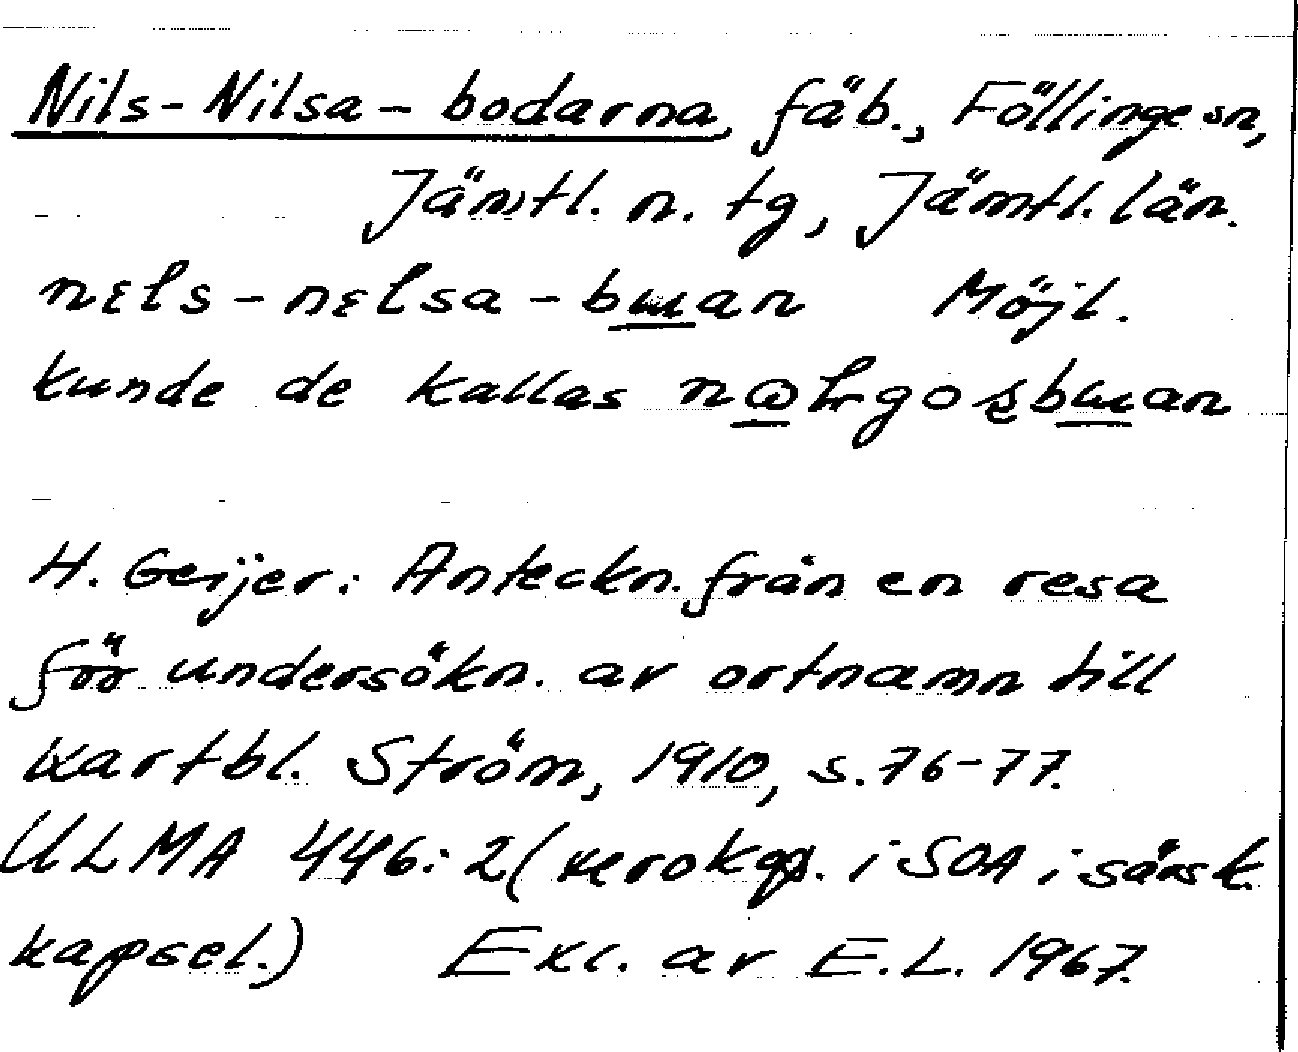 Nils-Nilsa-bodarna, fäb., Föllinge sn,
Jämtl. n. tg, Jämtl. län.
nɛls-nɛlsa-bɯan Möjl.
kunde de kallas
H. Geijer: Anteckn. från en resa
för undersökn. av ortnamn till
kartbl. Ström, 1910, s. 76-77.
ULMA 446:2 (xerokop. i SOA i särsk.
kapsel.) Exc. av E.L. 1967.